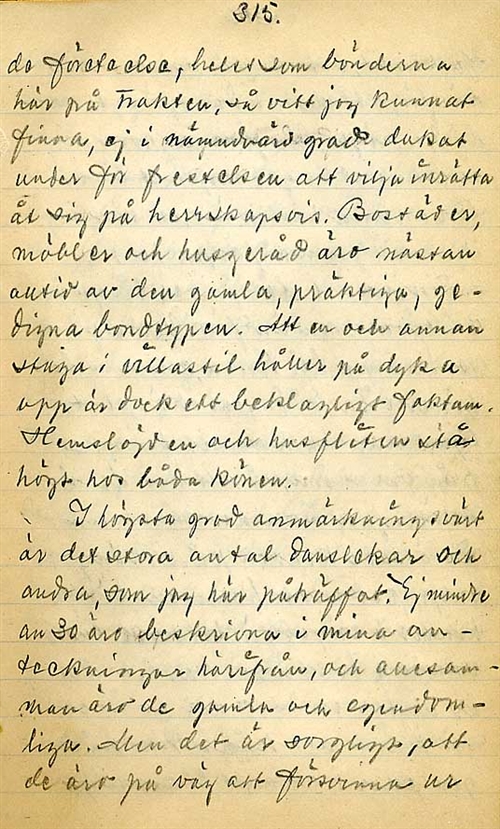 315.
de företeelse, helst som bönderna
här på trakten, så vitt jag kunnat
finna, ej i nämndvärd grad dukat
under för frestelsen att vilja inrätta
åt sig på herrskapsvis. Bostäder,
möbler och husgeråd äro nästan
alltid av den gamla, präktiga, ge-
digna bondtypen. Att en och annan
stuga i villastil håller på dyka
upp är dock ett beklagligt faktum.
Hemslöjden och husfliten stå
högt hos båda könen.
I högsta grad anmärkningsvärt
är det stora antal danslekar och
andra, som jag här påträffat. Ej mindre
än 30 äro beskrivna i mina an-
teckningar härifrån, och allesam-
man äro de gamla och egendom-
liga. Men det är sorgligt, att
de äro på väg att försvinna ur